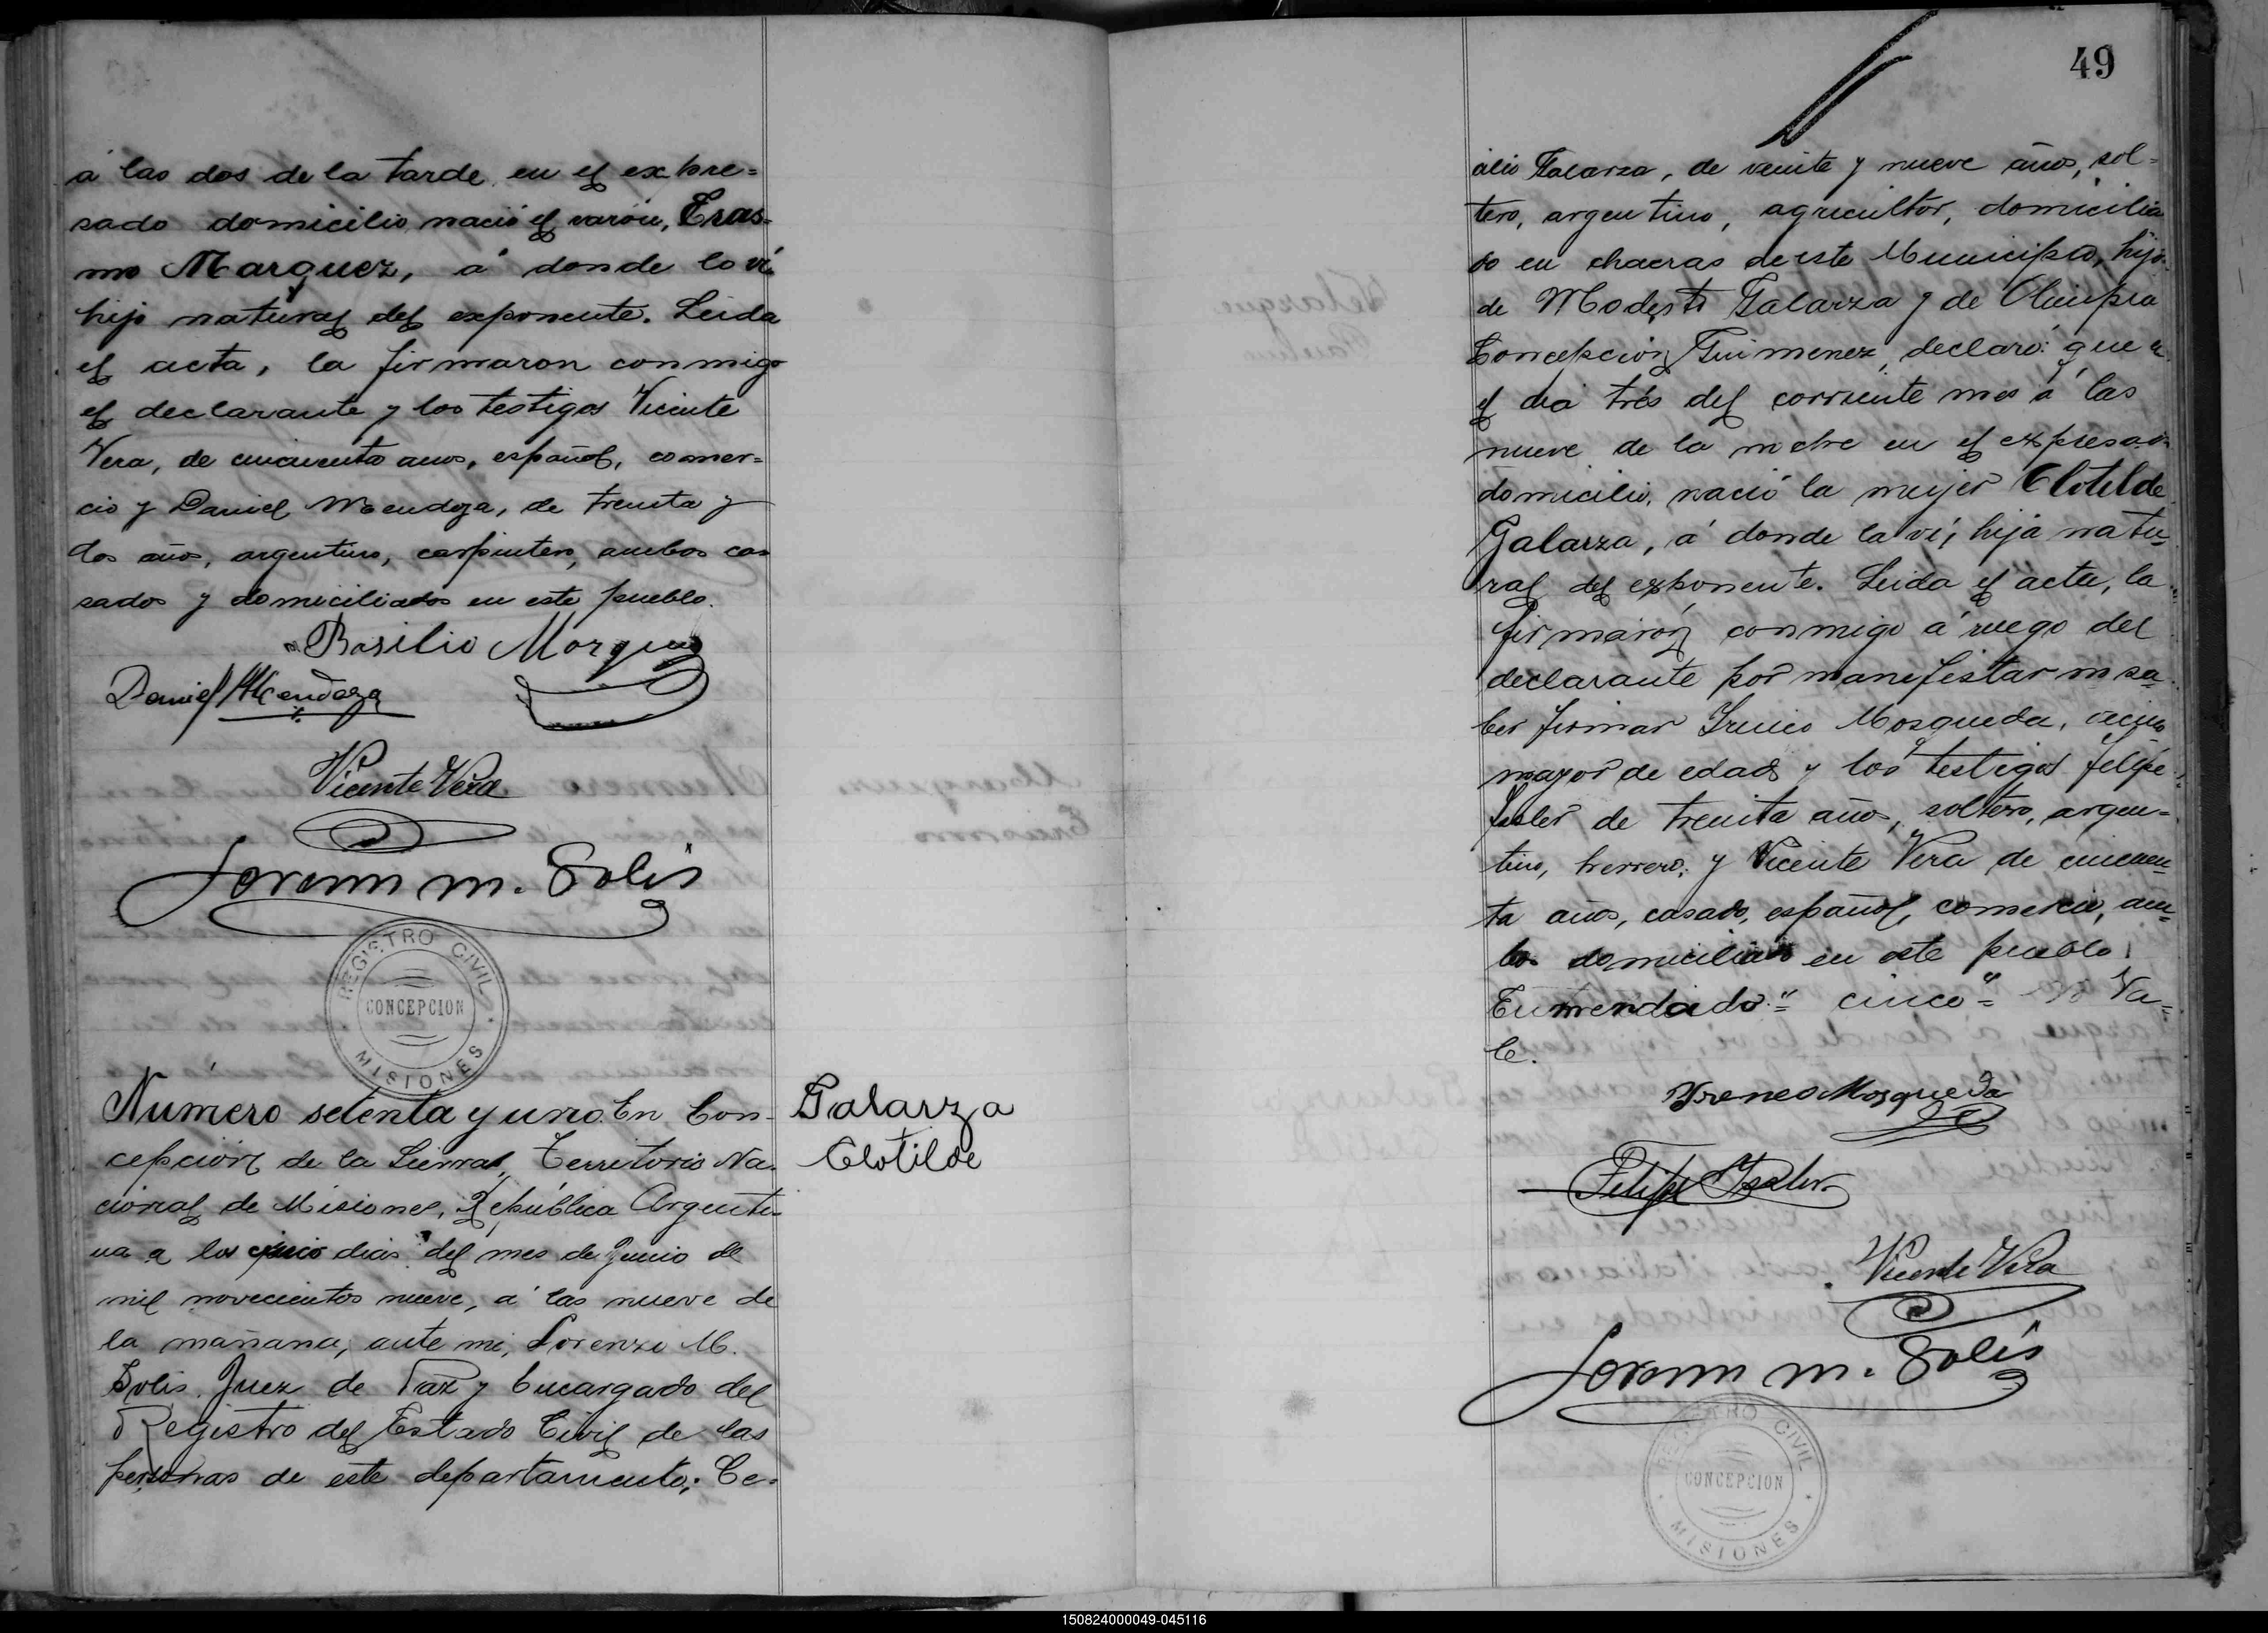 á las dos de la tarde en el expre=
sado domicilio nació el varón, Eras=
mo Marquez, á donde lo ví
hijo natural del exponente. Leida
el acta, la firmaron conmigo
el declarante y los testigos Vicente
Vera, de cincuenta anos, español, comer=
cio y Daniel Mendoza, de treinta y
dos años, argentino, carpintero, ambos ca=
sados y domiciliados en este pueblo.
Basilio Marquez
Daniel Mendoza
Vicente Vera
Lorenzo M. Solis
REGISTRO CIVIL
CONCEPCION
MISIONES
Número setenta y uno. En Con-
cepción de la Sierra, Territorio Na-
cional de Misiones, República Argenti-
na a los cinco dias del mes de Junio de
mil novecientos nueve, á las nueve de
la mañana, ante mi, Lorenzo M.
Solis. Juez de Paz y Encargado del
Registro del Estado Civil de las
personas de este departamento; Ce-
Galarza
Clotilde
49
cilio Galarza, de veinte y nueve años, sol=
tero, argentino, agricultor, domicilia
do en chacras de este Municipio, hijo
de Modesto Galarza y de Olimpia
Concepción Guimenez, declaró: que
el dia trés del corriente mes á las
nueve de la noche en el expresado
domicilio, nació la mujer Clotilde
Galarza, á donde la ví, hija natu=
ral del exponente. Leida el acta, la
firmarón conmigo á ruego del
declarante por manifestar no sa=
ber firmar Irineo Mosqueda, vecino
mayor de edad y los testigos Felipe
de treinta años, soltero, argen=
tino, herrero, y Vicente Vera de cincuen=
ta años, casado, español, comercio, am=
bos domiciliados en este pueblo.
Enmendado "cinco" = Va=
le.
Yreneo Mosqueda
Felipe
Vicente Vera
Lorenzo M. Solis
REGISTRO CIVIL
CONCEPCION
MISIONES
150824000049-045116